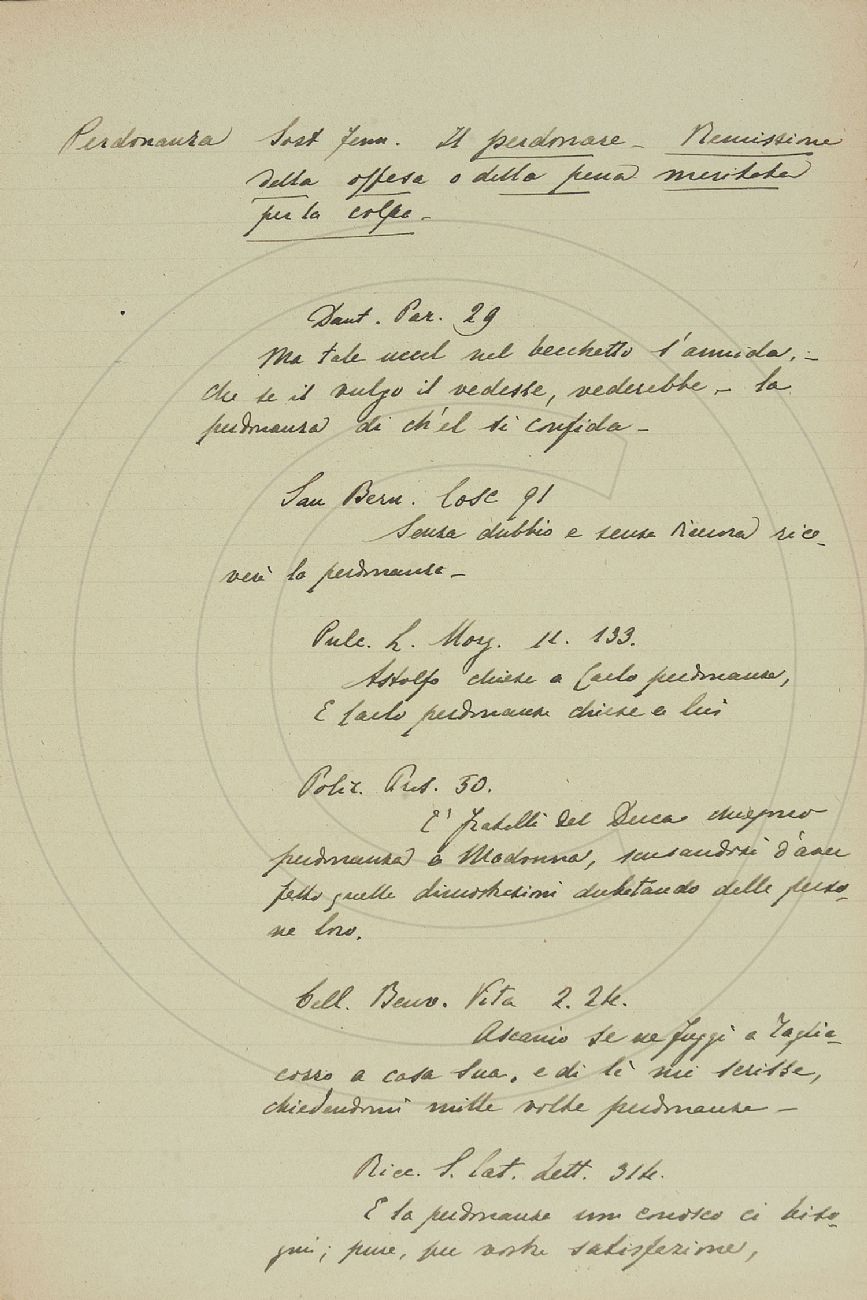 Perdonanza Sost femm. Il perdonare - Remissione
della offesa o della pena meritata
per la colpa -
Dant. Par. 29
Ma tale uccel nel becchetto s'annida, -
che se il vulgo il vedesse, vederebbe - la
perdonanza di ch'el si confida -
San Bern. Cosc 91
Senza dubbio e senza rice-
verà la perdonanza -
Pulc. L. Morg. 11. 133.
Astolfo chiese a Carlo perdonanza,
E Carlo perdonanza chiese a lui
Poliz. 50.
E' fratelli del Duca chiesono
perdonanza a Madonna, scusandosi d'aver
fatto quelle dimostrazioni dubitando delle perso-
ne loro.
Cell. Benv. Vita 2. 24.
Ascanio se ne fuggì a Taglia-
cozzo a casa sua, e di lì mi scrisse,
chiedendomi mille volte perdonanza -
Ricc. S. Cat. Lett. 314.
E la perdonanza non conosco ci biso-
gni; pure, per vostra satisfazione,